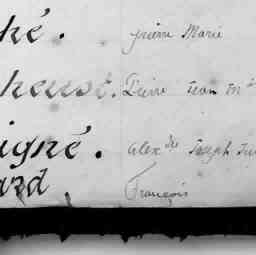 hé. pierre Marie
heust. Pierre Jean M
igné. Alex dre Joseph
ard. François